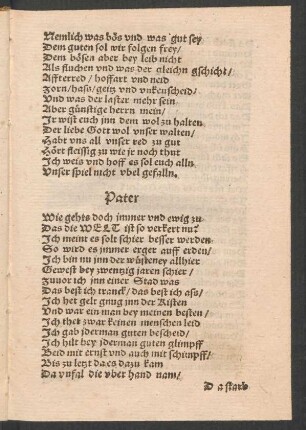 Nemlich was bös vnd was gut sey/
Dem guten sol wir folgen frey/
Dem bösen aber bey leib nicht
Als fluchen vnd was der gleichn gschicht/
Affterred/ hoffart vnd neid
Zorn/hass/geitz vnd vnkeuscheid/
Vnd was der laster mehr sein
Aber günstige herrn mein/
Jr wist euch jnn dem wol zu halten
Der liebe Gott wol vnser walten/
Habt vns all vnser red zu gut
Hört fleissig zu wie jr noch thut
Ich weis vnd hoff es sol euch alln
Vnser spiel nicht vbel gefalln.
Pater
Wie gehts doch jmmer vnd ewig zu
Das die WELT ist so verkert nu?
Ich meint es solt schier besser werden
So wird es jmmer erger auff erden/
Ich bin nu jnn der wüsteney allhier
Gewest bey zwentzig jaren schier/
Zuuor ich jnn einer Stad was
Das best ich tranck/ das best ich ass/
Ich het gelt gnug jnn der Kisten
Vnd war ein man bey meinen besten/
Ich thet zwar keinen menschen leid
Ich gab jderman guten bescheid/
Ich hilt bey jderman guten glimpff
Beid mit ernst vnd auch mit schimpff/
Bis zu letzt da es dazu kam
Da vnfal die vber hand nam/
D a starb